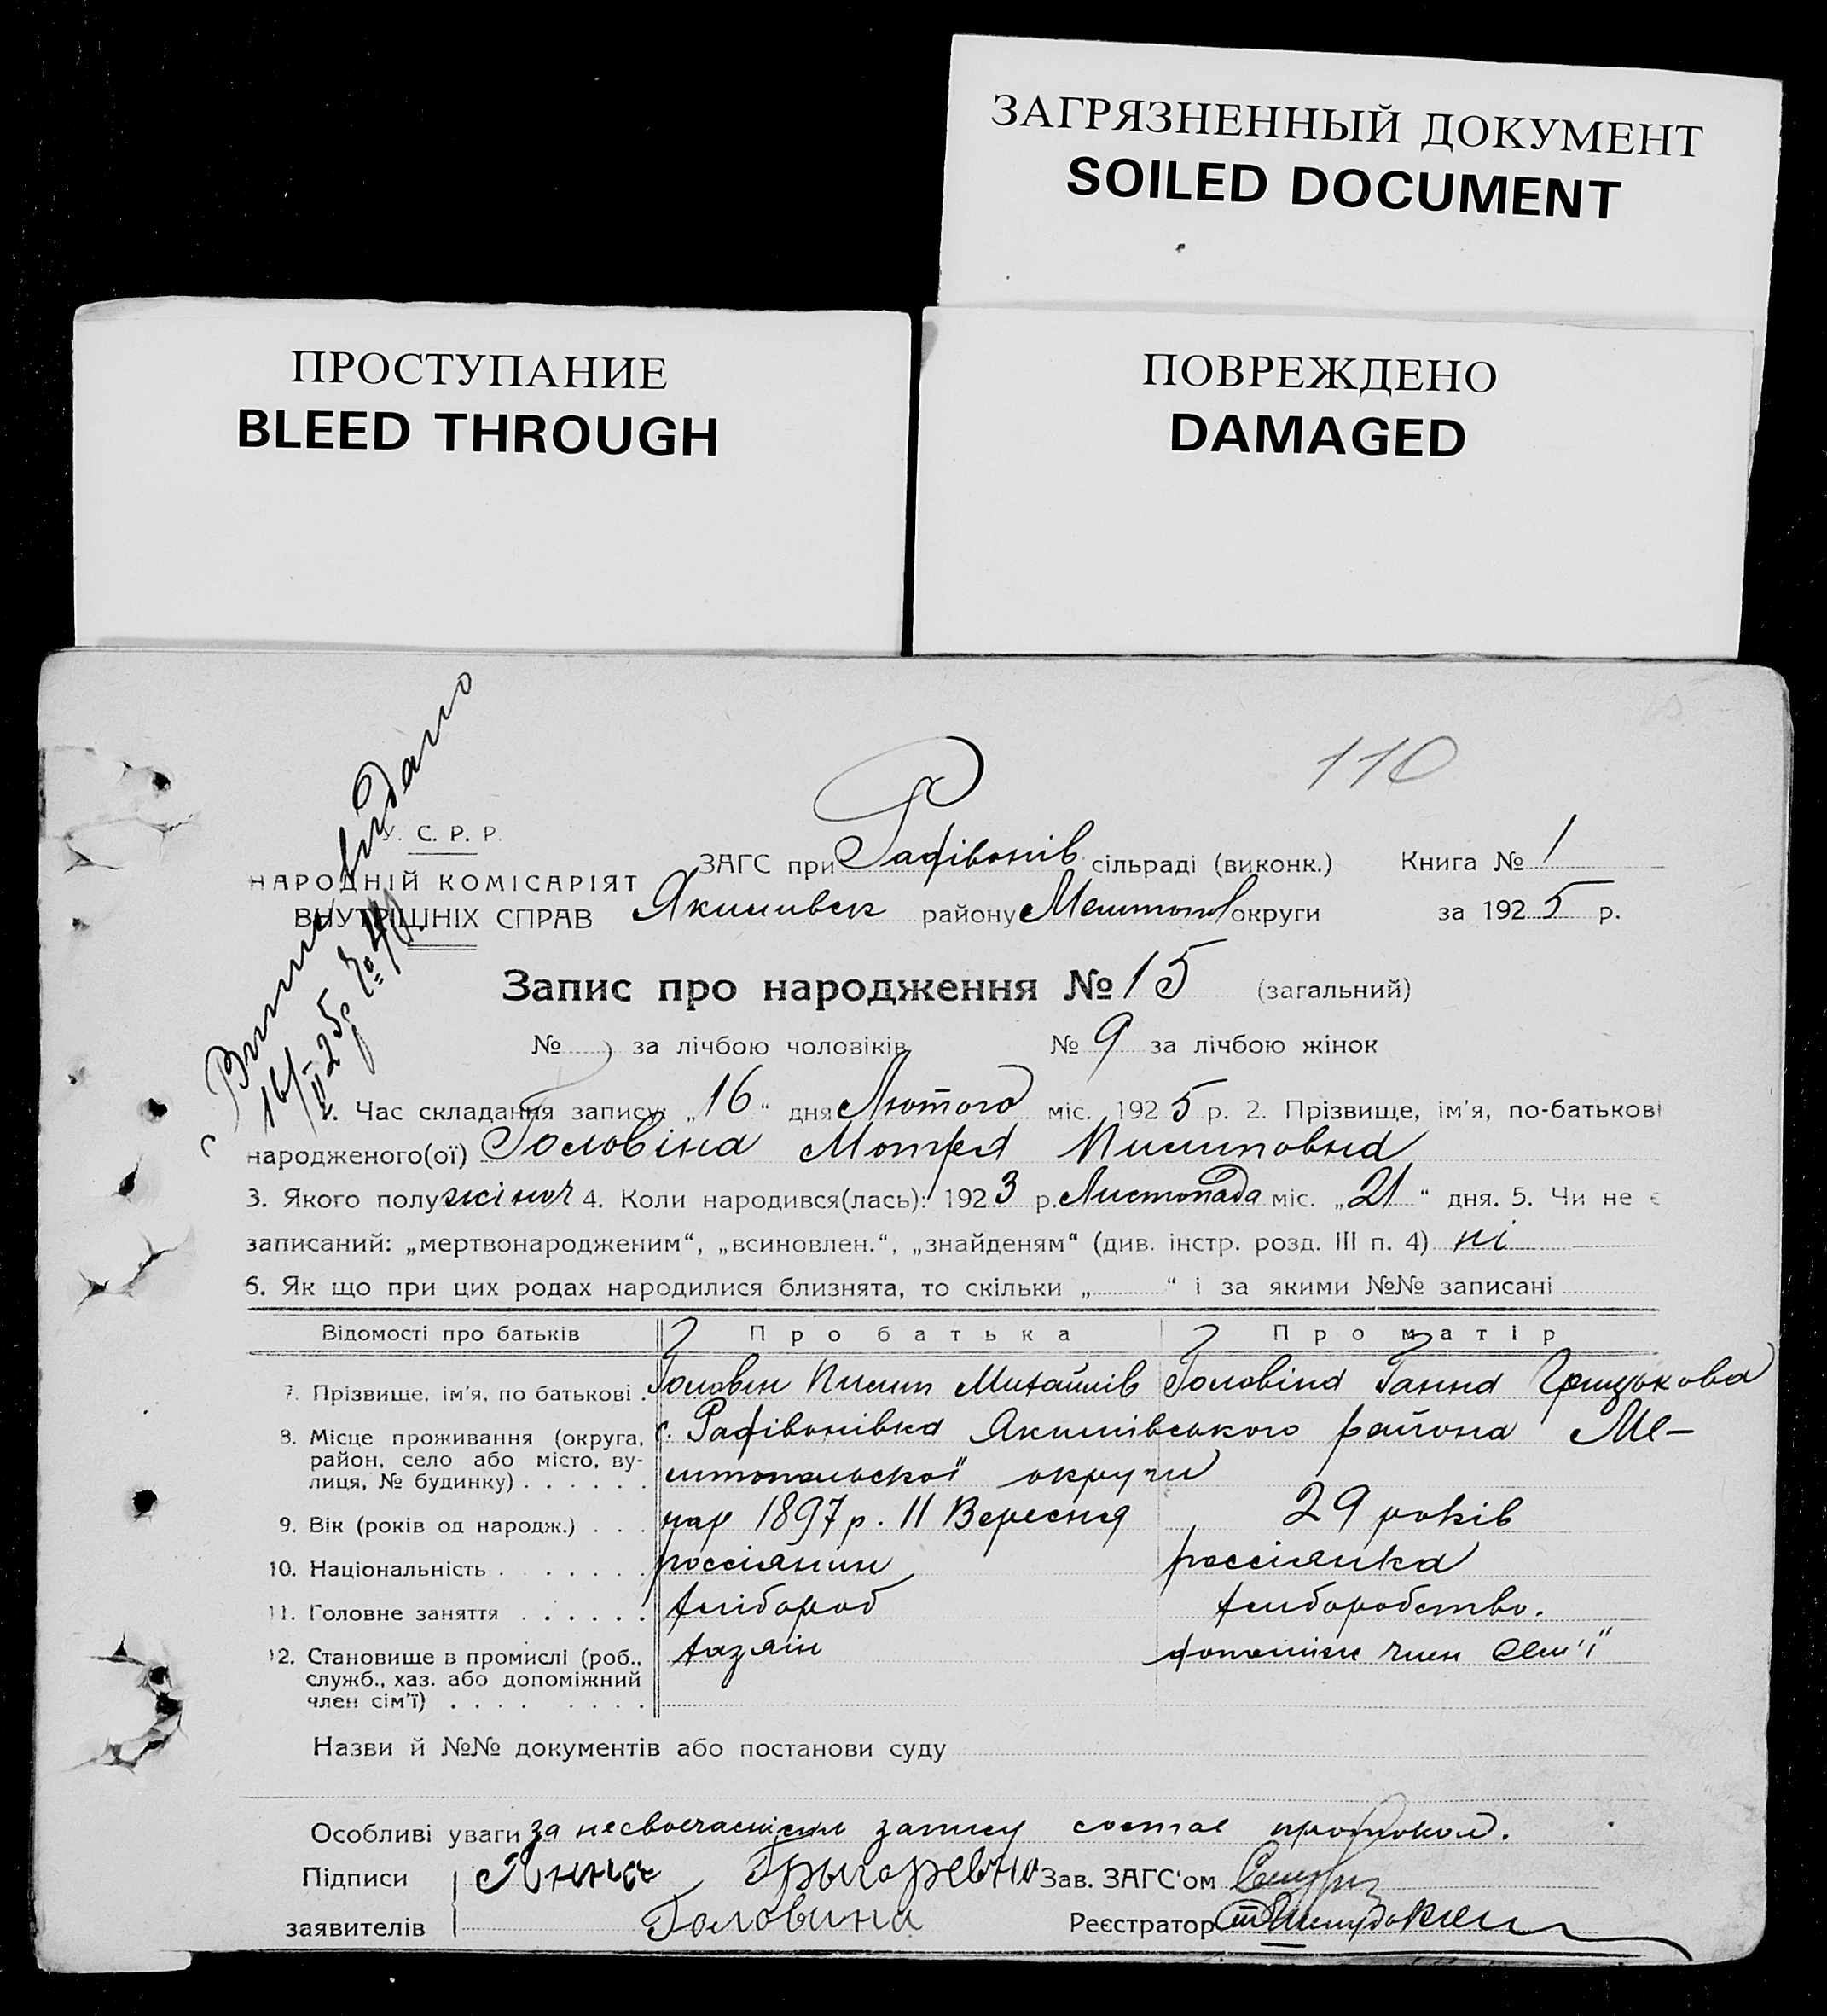 ЗАГРЯЗНЕННЫЙ ДОКУМЕНТ
SOILED DOCUMENT
ПРОСТУПАНИЕ
BLEED THROUGH
ПОВРЕЖДЕНО
DAMAGED
110
Випис видано
16/II-25р №
У. С. Р. Р.
НАРОДНІЙ КОМІСАРІЯТ
ВНУТРІШНІХ СПРАВ
ЗАГС при Рафівонів сільраді (виконк.) Книга № 1
Якимивск району Мелитопол округи за 1925 р.
Запис про народження № 15 (загальний)
№ за лічбою чоловіків № 9 за лічбою жінок
1. Час складання запису: „16“ дня Лютого міс. 1925 р. 2. Прізвище, ім'я, по-батькові
народженого(ої) Головіна Мотря Пилиповна
3. Якого полу жіноч 4. Коли народився(лась): 1923 р. Листопада міс. „21“ дня. 5. Чи не є
записаний: „мертвонародженим“, „всиновлен.“, „знайденям“ (див. інстр. розд. III п. 4) ні
6. Як що при цих родах народилися близнята, то скільки „ “ і за якими №№ записані
Відомості про батьків Про батька Про матір
7. Прізвище, ім'я, по батькові . Головін Пилип Михайлів Головіна Ганна Грицькова
8. Місце проживання (округа, район, село або місто, вулиця, № будинку) . . . . . . с. Рафівонівка Якимівського района Ме-
литопольскої округи
9. Вік (років од народж.) . . . нар 1897 р. 11 Вересня 29 років
10. Національність . . . . . . . россіянин россіянка
11. Головне заняття . . . . . . хлібороб хлиборобство.
12. Становище в промислі (роб., служб., хаз. або допоміжний член сім'ї) . . . . . . . . хазяін допоміжн член сем'ї
Назви й №№ документів або постанови суду
Особливі уваги за несвоечасність запису состав протокол.
Підписи Анна Грыгоревна Зав. ЗАГС'ом
заявителів Головина Реєстратор